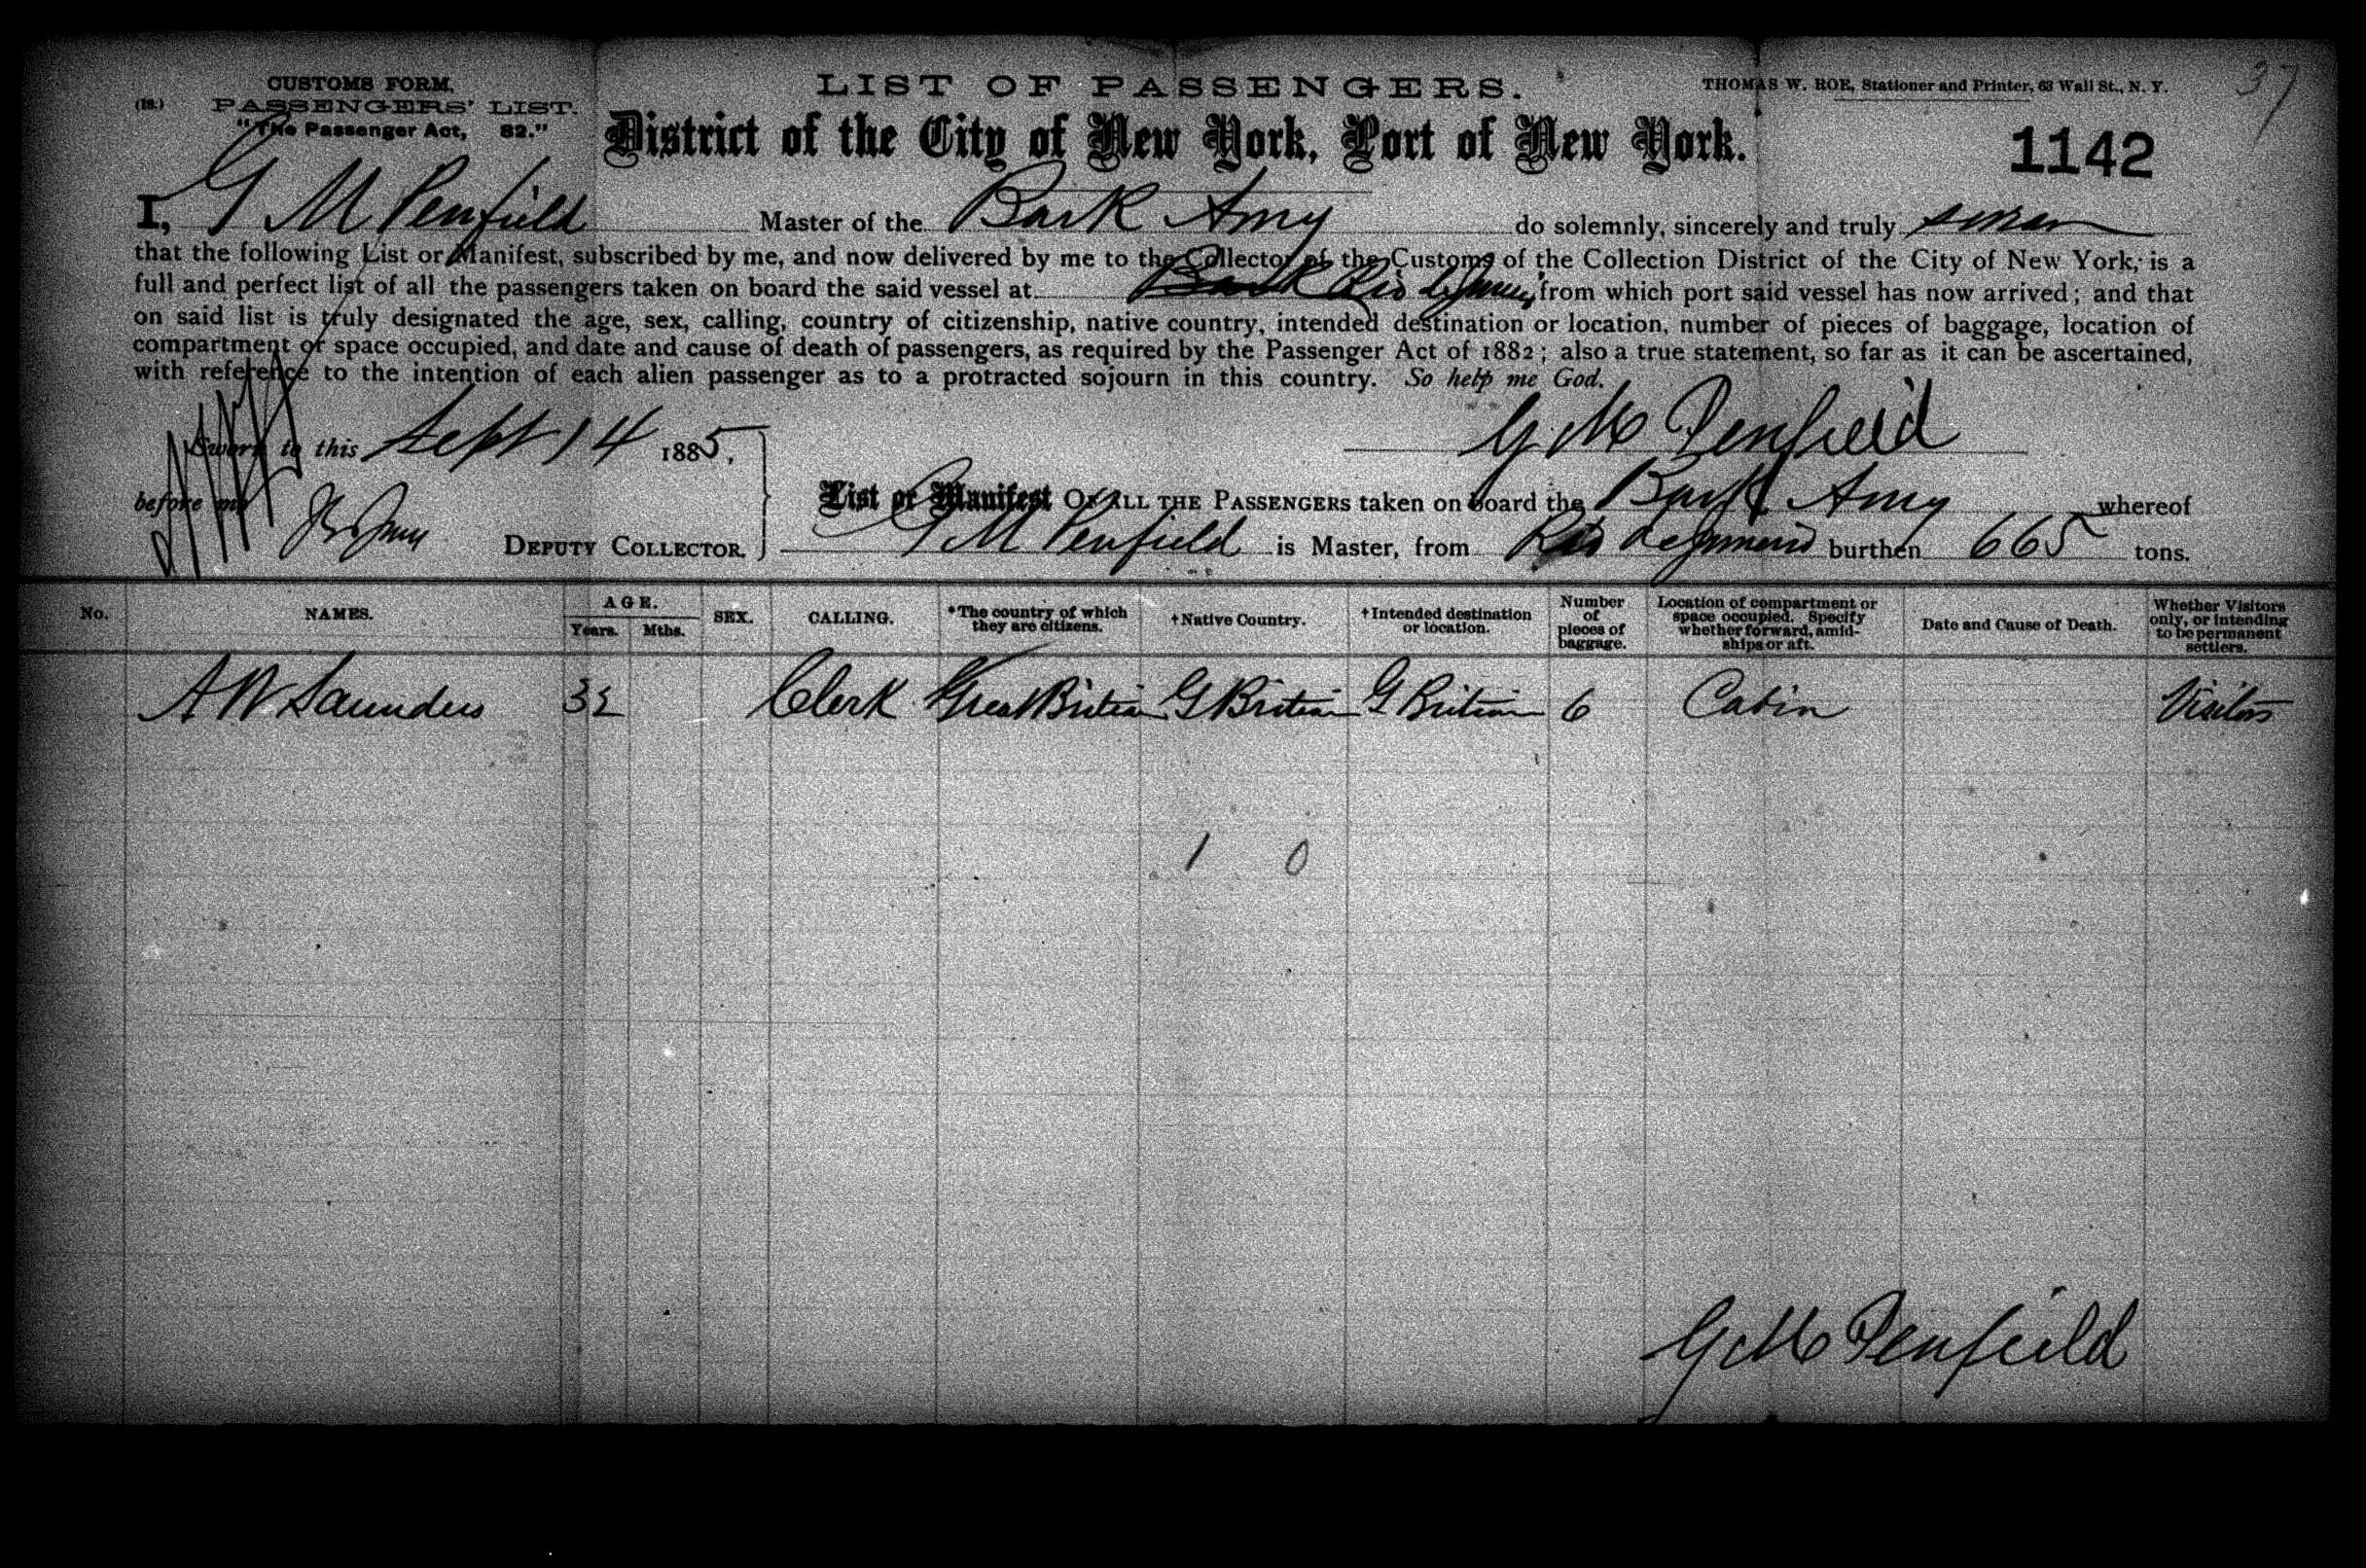 CUSTOMS FORM.
(18.) PASSENGERS' LIST.
"The Passenger Act, 82."
LIST OF PASSENGERS.
THOMAS W. ROE, Stationer and Printer, 63 Wall St., N. Y.
37
District of the City of New York, Port of New York.
1142
I, G M Penfield Master of the Bark Amy do solemnly, sincerely and truly swear
that the following List or Manifest, subscribed by me, and now delivered by me to the Collector of the Customs of the Collection District of the City of New York, is a
full and perfect list of all the passengers taken on board the said vessel at Rio de from which port said vessel has now arrived; and that
on said list is truly designated the age, sex, calling, country of citizenship, native country, intended destination or location, number of pieces of baggage, location of
compartment or space occupied, and date and cause of death of passengers, as required by the Passenger Act of 1882; also a true statement, so far as it can be ascertained,
with reference to the intention of each alien passenger as to a protracted sojourn in this country. So help me God.
G. M Penfield
Sworn to this Sept 14 1885,
before me
DEPUTY COLLECTOR.
List or Manifest OF ALL THE PASSENGERS taken on board the Bark Amy whereof
G M Penfield is Master, from Rio burthen 665 tons.
No. NAMES. AGE. Years. Mths. SEX. CALLING. *The country of which they are citizens. †Native Country. †Intended destination or location. Number of pieces of baggage. Location of compartment or space occupied. Specify whether forward, amidships or aft. Date and Cause of Death. Whether Visitors only, or intending to be permanent settlers.
A W Saunders 32 Clerk Great Britian G Britian G Britian 6 Cabin Visitors
1 0
G M Penfield